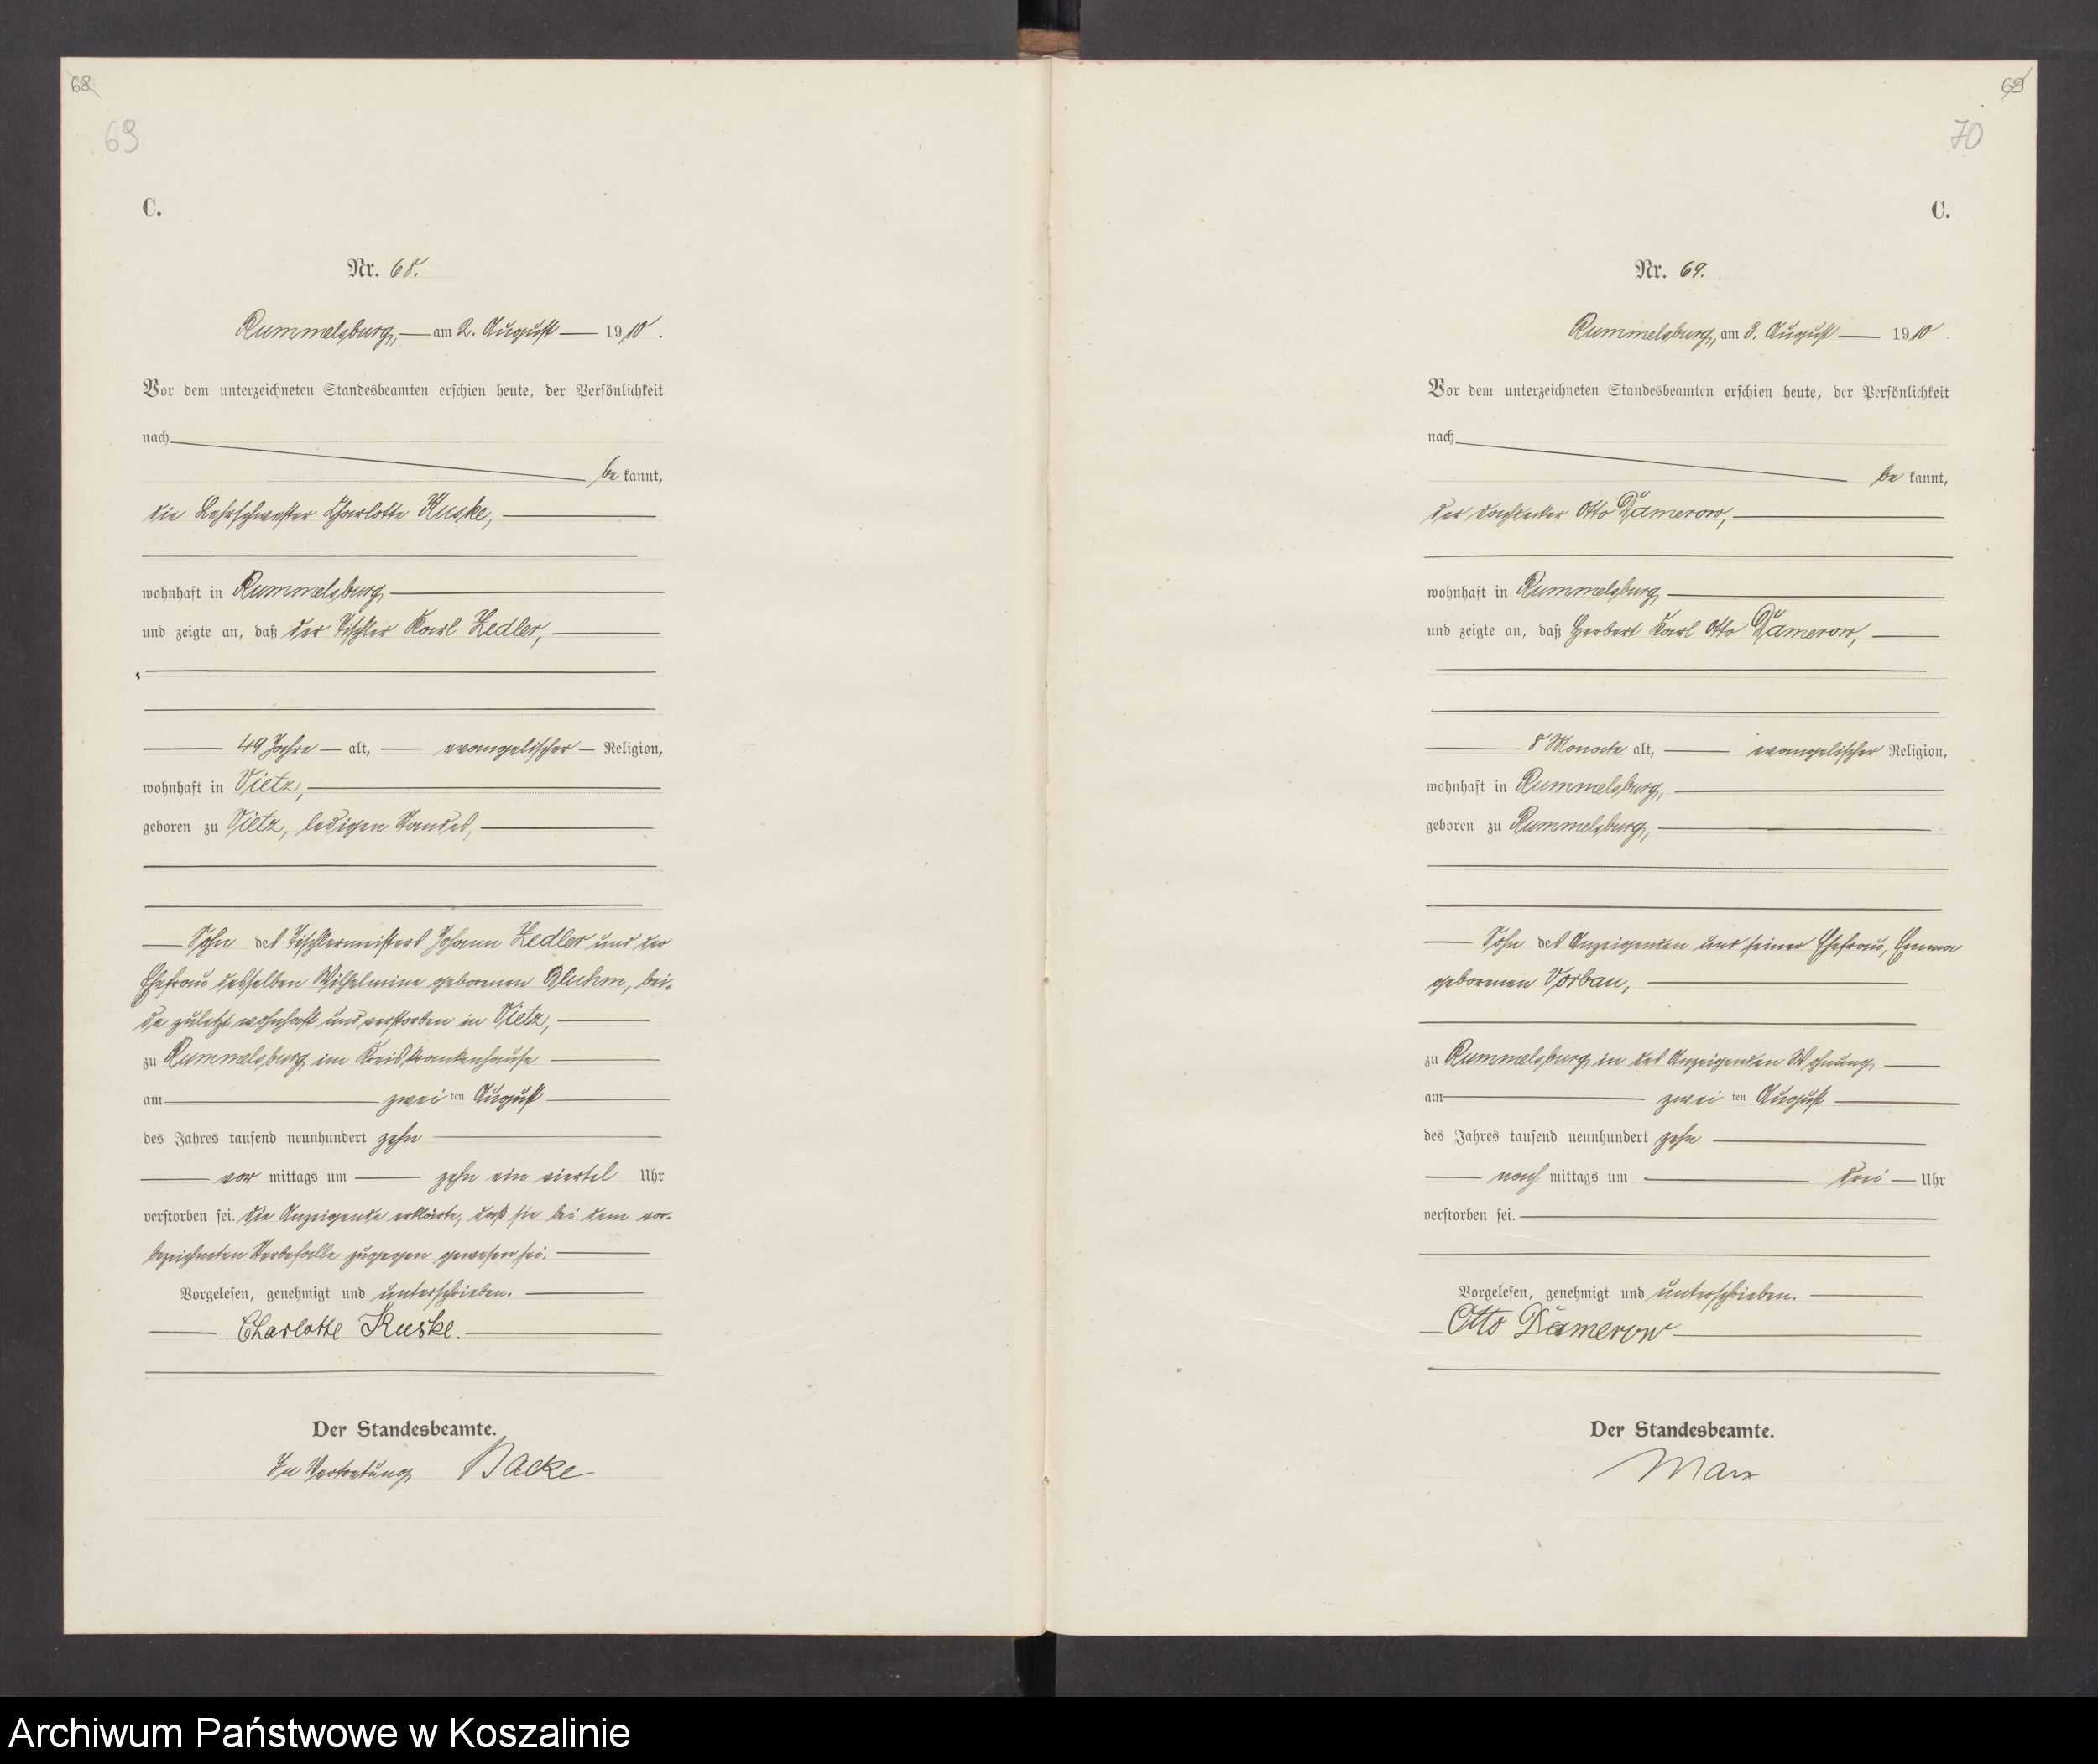 68
69
C.
Nr. 68.
Rummelsburg, am 2. August 1910.
Vor dem unterzeichneten Standesbeamten erschien heute, der Persönlichkeit
nach
be kannt,
die Lehrschwester Charlotte Kuske,
wohnhaft in Rummelsburg
und zeigte an, daß der Tischler Karl Zedler,
49 Jahre alt, evangelischer Religion,
wohnhaft in Vietz,
geboren zu Vietz, ledigen Standes,
Sohn des Tischlermeisters Johann Zedler und der
Ehefrau desselben Wilhelmine geborenen Bluhm, bei-
de zuletzt wohnhaft und verstorben in Vietz,
zu Rummelsburg im Kreiskrankenhause
am zwei ten August
des Jahres tausend neunhundert zehn
vor mittags um zehn ein viertel Uhr
verstorben sei. Die Anzeigende erklärte, daß sie bei dem vor-
bezeichneten Sterbefalle zugegen gewesen sei.
Vorgelesen, genehmigt und unterschrieben.
Charlotte Kuske.
Der Standesbeamte.
In Vertretung Backe
69
70
C.
Nr. 69.
Rummelsburg, am 3. August 1910.
Vor dem unterzeichneten Standesbeamten erschien heute, der Persönlichkeit
nach
be kannt,
der Dachdecker Otto Damerow,
wohnhaft in Rummelsburg
und zeigte an, daß Herbert Karl Otto Damerow,
8 Monate alt, evangelischer Religion,
wohnhaft in Rummelsburg,
geboren zu Rummelsburg,
Sohn des Anzeigenden und seiner Ehefrau, Emma
geborenen Vorbau,
zu Rummelsburg, in des Anzeigenden Wohnung
am zwei ten August
des Jahres tausend neunhundert zehn
nach mittags um drei Uhr
verstorben sei.
Vorgelesen, genehmigt und unterschrieben.
Otto Damerow
Der Standesbeamte.
Marx
Archiwum Państwowe w Koszalinie